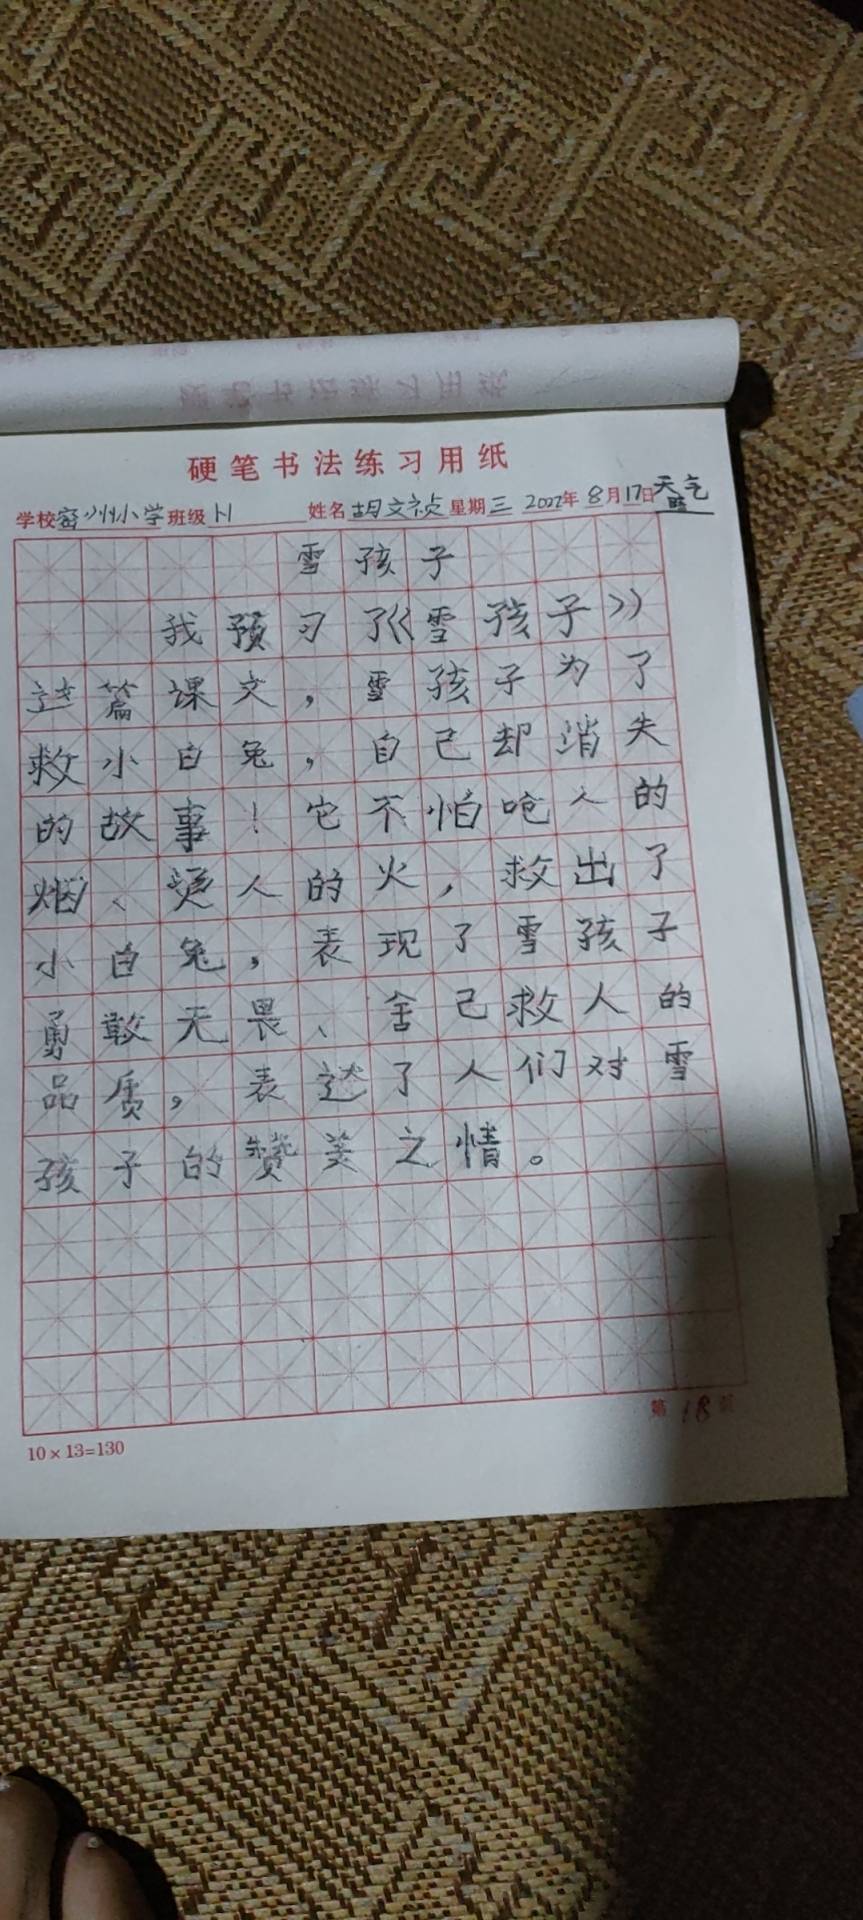 硬笔书法练习用纸
学校密州小学班级 姓名胡文祯星期三 2022年8月17日天气
雪孩子
我预习了《雪孩子》
这篇课文，雪孩子为了
救小白兔，自己却消失
的故事！它不怕呛人的
烟、烫人的火，救出了
小白兔，表现了雪孩子
勇敢无畏、舍己救人的
品质，表达了人们对雪
孩子的赞美之情。
第18页
10×13=130